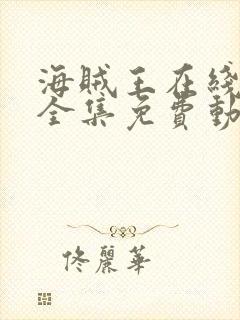 海賊王在綫
全集免費動
佟麗華